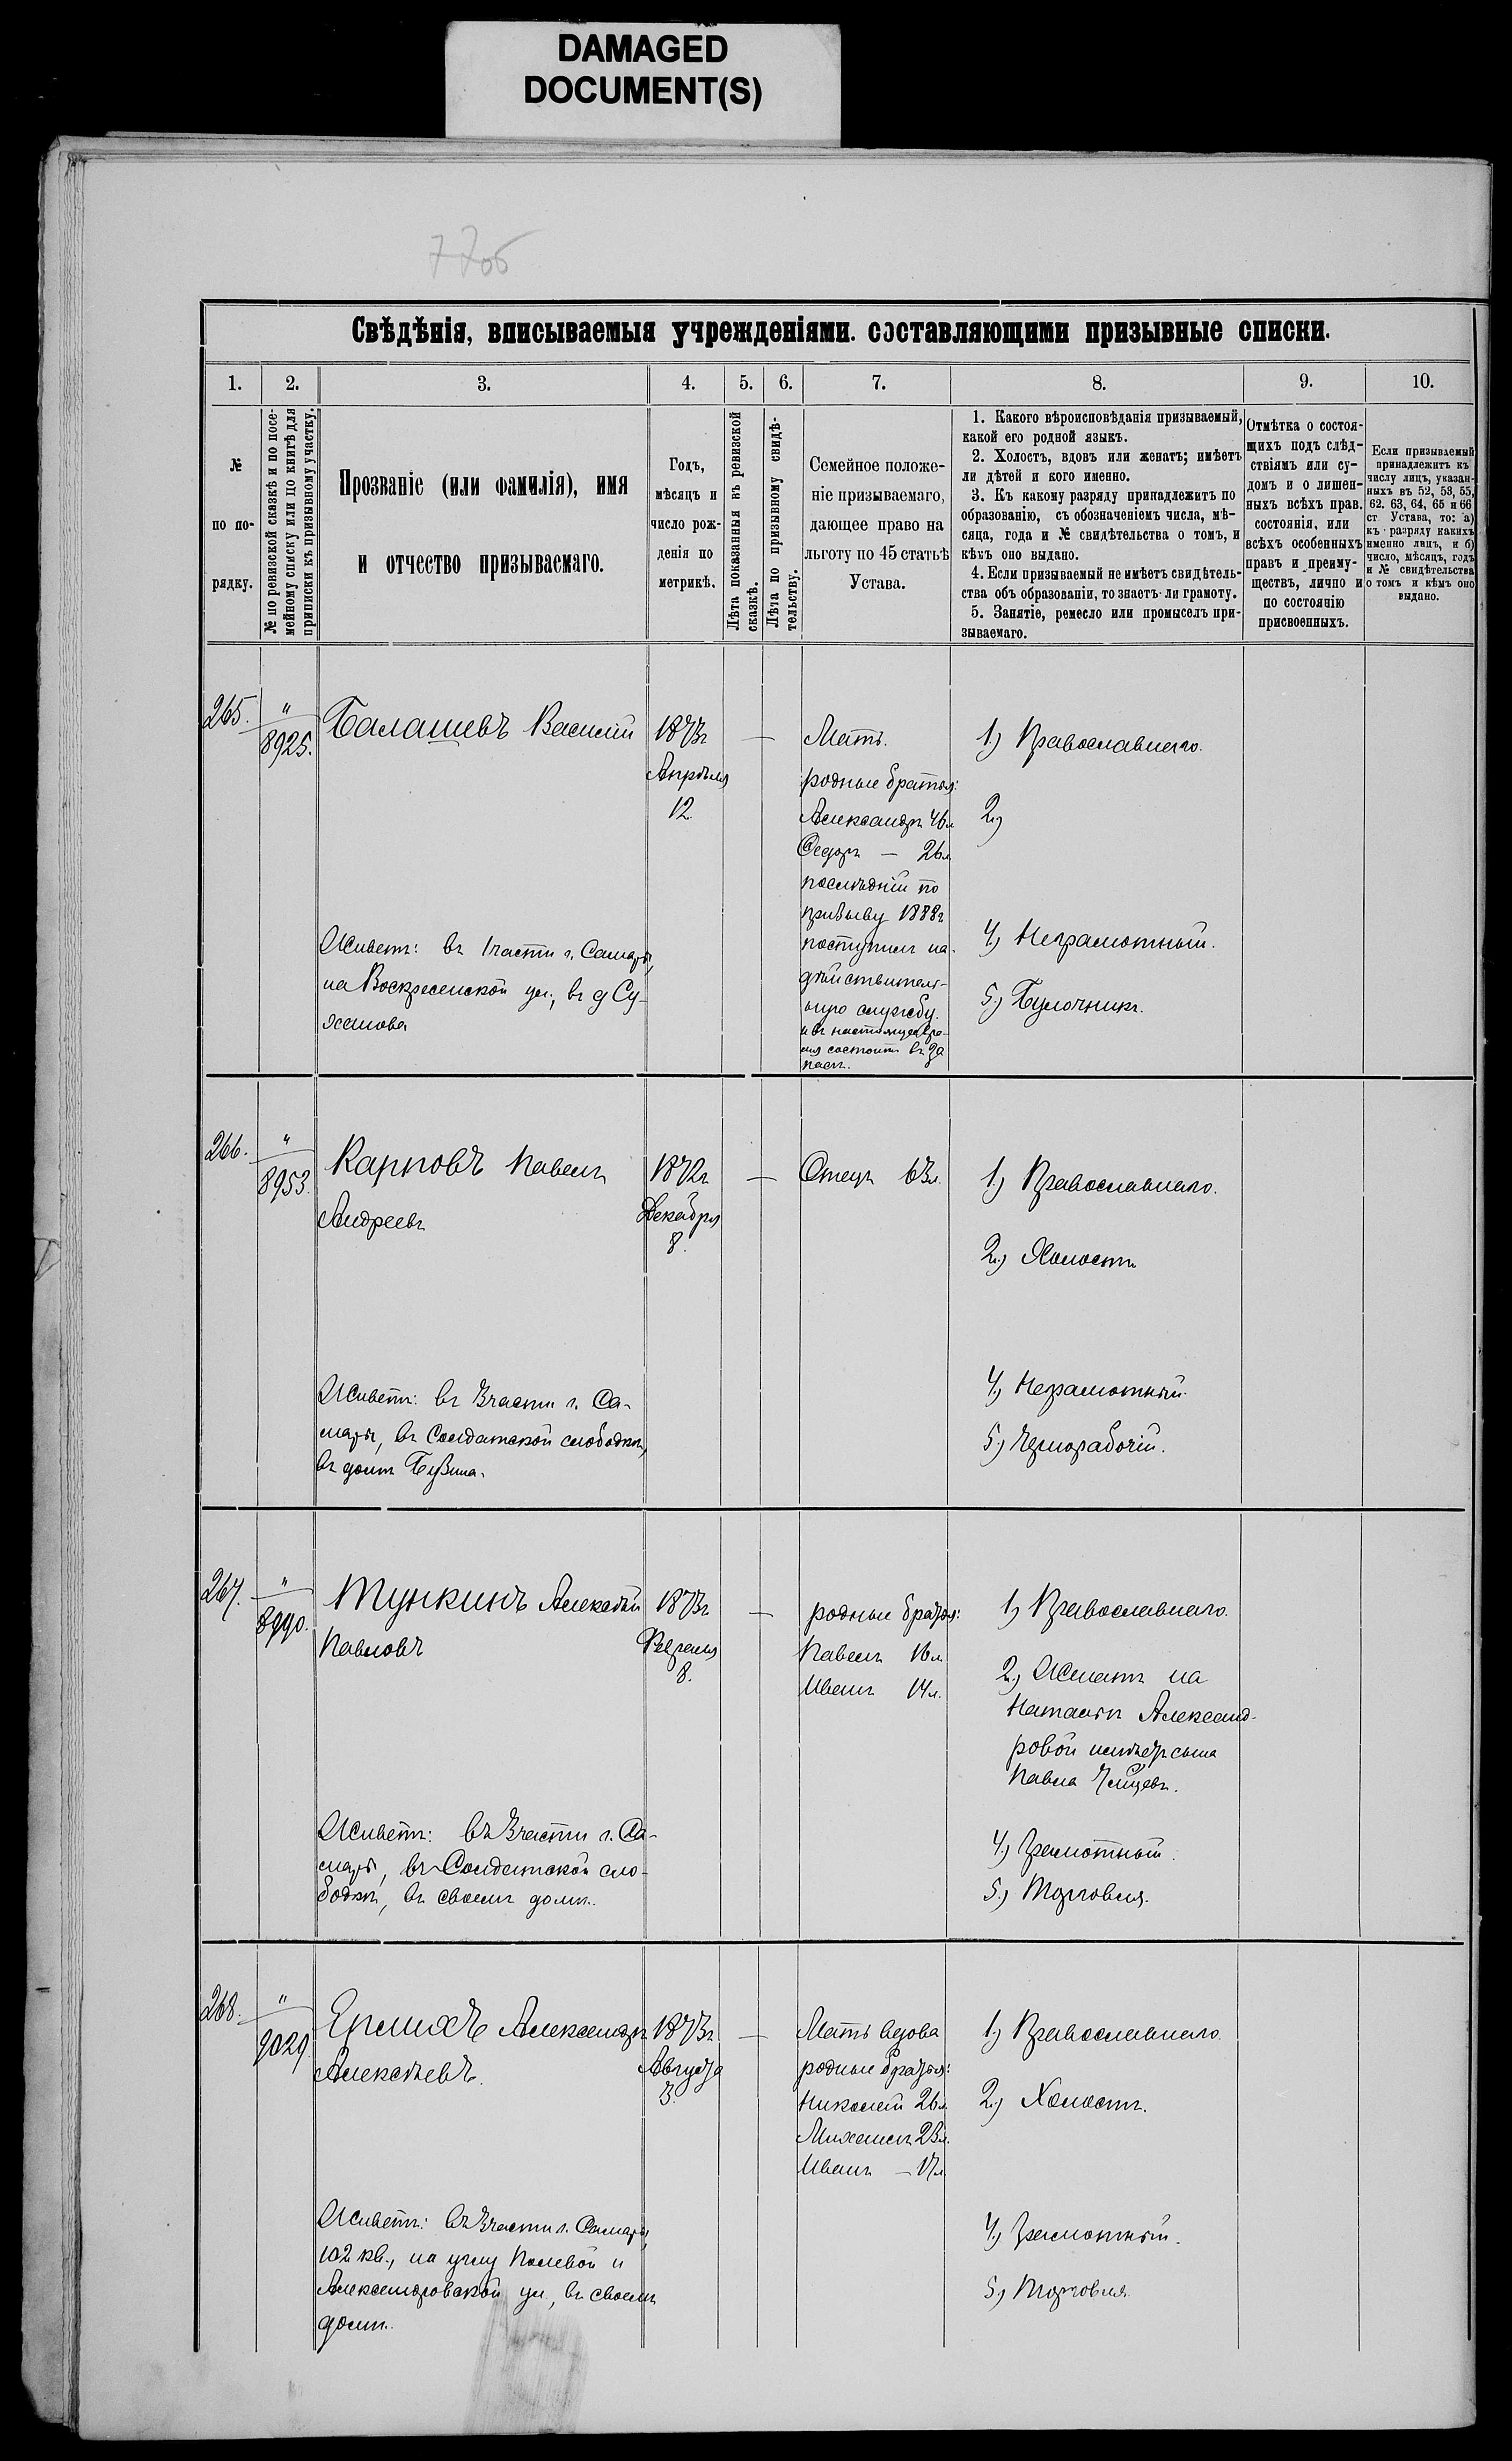 DAMAGED
DOCUMENT(S)
7706
Свѣдѣнія, вписываемыя учрежденіями. составляющими призывные списки.
1. 2. 3. 4. 5. 6. 7. 8. 9. 10.
№
по по-
рядку.
№ по ревизской сказкѣ и по посе-
мейному списку или по книгѣ для
приписки къ призывному участку.
Прозваніе (или фамилія), имя
и отчество призываемаго.
Годъ,
мѣсяцъ и
число рож-
денія по
метрикѣ.
Лѣта показанныя къ ревизской
сказкѣ.
Лѣта по призывному свидѣ-
тельству.
Семейное положе-
ніе призываемаго,
дающее право на
льготу по 45 статьѣ
Устава.
1. Какого вѣроисповѣданія призываемый,
какой его родной языкъ.
2. Холостъ, вдовъ или женатъ; имѣетъ
ли дѣтей и кого именно.
3. Къ какому разряду принадлежитъ по
образованію, съ обозначеніемъ числа, мѣ-
сяца, года и № свидѣтельства о томъ, и
кѣмъ оно выдано.
4. Если призываемый не имѣетъ свидѣтель-
ства объ образованіи, то знаетъ-ли грамоту.
5. Занятіе, ремесло или промыселъ при-
зываемаго.
Отмѣтка о состоя-
щихъ подъ слѣд-
ствіямъ или су-
домъ и о лишен-
ныхъ всѣхъ прав.
состоянія, или
всѣхъ особенныхъ
правъ и преиму-
ществъ, лично и
по состоянію
присвоенныхъ.
Если призываемый
принадлежитъ къ
числу лицъ, указан-
ныхъ въ 52, 53, 55,
62. 63, 64, 65 и 66
ст Устава, то: а)
къ разряду какихъ
именно лицъ, и б)
число, мѣсяцъ, годъ
и № свидѣтельства
о томъ и кѣмъ оно
выдано.
265.
"
8925.
Балашевъ Василій
Живетъ: въ 1 части г. Самары,
на Воскресенской ул., въ д Су-
1873г
Апрѣля
12.
—
Мать.
родные братья:
Александръ 46л
Ѳедоръ — 26л
послѣдній по
призыву 1888г
поступилъ на
дѣйствитель-
ную службу.
и въ настоящее вре-
мя состоитъ въ за
пасѣ.
1.) Православнаго.
2.)
4.) Неграмотный.
5.) Булочникъ.
266.
"
8953.
Карповъ Павелъ
Андреевъ
Живетъ: въ 3 части г. Са-
мары, въ Солдатской слободкѣ,
въ домѣ Бузина.
1872г
Декабря
8.
—
Отецъ 63л.
1.) Православнаго.
2.) Холостъ
4.) Неграмотный.
5.) Чернорабочій.
267.
"
8990.
Тункинъ Алексѣй
Павловъ
Живетъ: въ 3 части г. Са-
мары, въ Солдатской сло-
бодкѣ, въ своемъ домѣ.
1873г
Февраля
8.
—
родные братья:
Павелъ 16л
Иванъ 14л.
1.) Православнаго.
2.) Женатъ на
Натальѣ Александ-
ровой
Павла
4.) Грамотный.
5.) Торговля.
268.
"
9029.
Ермихъ Александръ
Алексѣевъ.
Живетъ: въ 3 части г. Самары,
102 кв., на углу Полевой и
Александровской ул., въ своемъ
домѣ.
1873г
Августа
3.
—
Мать вдова
родные братья:
Николай 26л
Михаилъ 23л.
Иванъ — 17л
1.) Православнаго.
2.) Холостъ.
4.) Грамотный.
5.) Торговля.